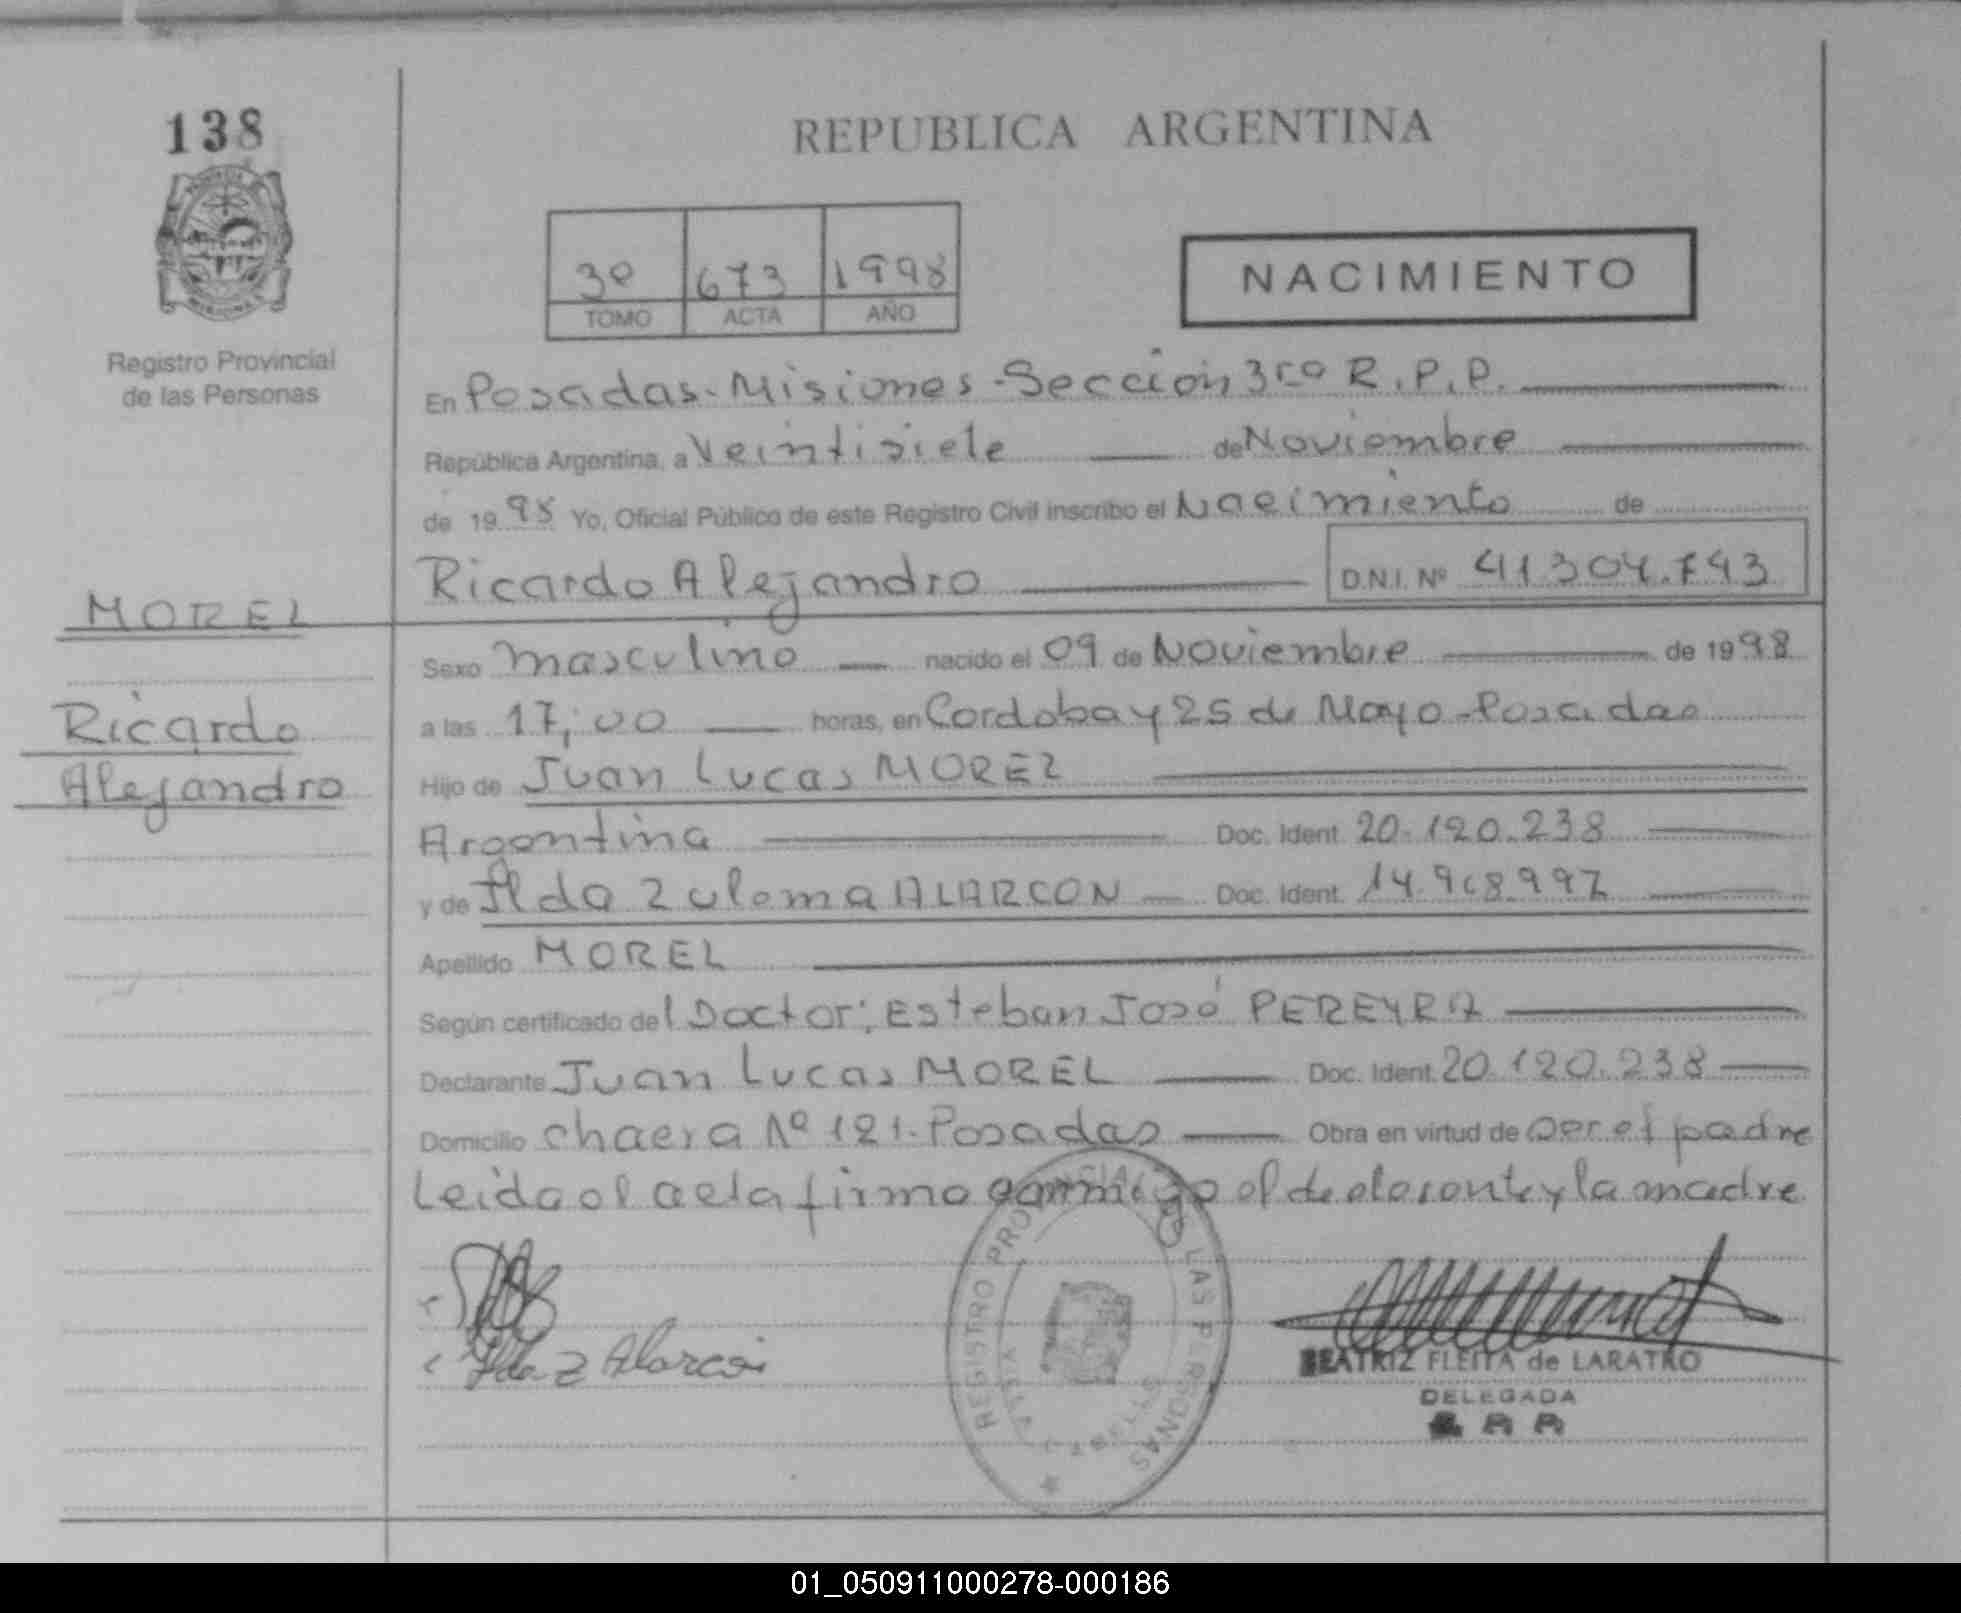 138
Registro Provincial
de las Personas
MOREL
Ricardo
Alejandro
REPUBLICA ARGENTINA
3º 673 1998
TOMO ACTA AÑO
NACIMIENTO
En Posadas-Misiones-Sección 3ra R.P.P.
República Argentina, a Veintisiete de Noviembre
de 1998 Yo, Oficial Público de este Registro Civil inscribo el Nacimiento de
Ricardo Alejandro D.N.I. Nº 41304.743
Sexo masculino nacido el 09 de Noviembre de 1998
a las 17,00 horas, en Cordoba y 25 de Mayo-Posadas
Hijo de Juan Lucas MOREL
Argentina Doc. Ident. 20.120.238
y de Ilda Zulema ALARCON Doc. Ident. 14.968.997
Apellido MOREL
Según certificado del Doctor: Esteban José PEREYRA
Declarante Juan Lucas MOREL Doc. Ident. 20.120.238
Domicilio chacra Nº 121-Posadas Obra en virtud de ser el padre
Leida el acta firma conmigo el declarante y la madre
Ilda Z Alarcon
REGISTRO PROVINCIAL DE LAS PERSONAS
BEATRIZ FLEITA de LARATRO
DELEGADA
01_050911000278-000186